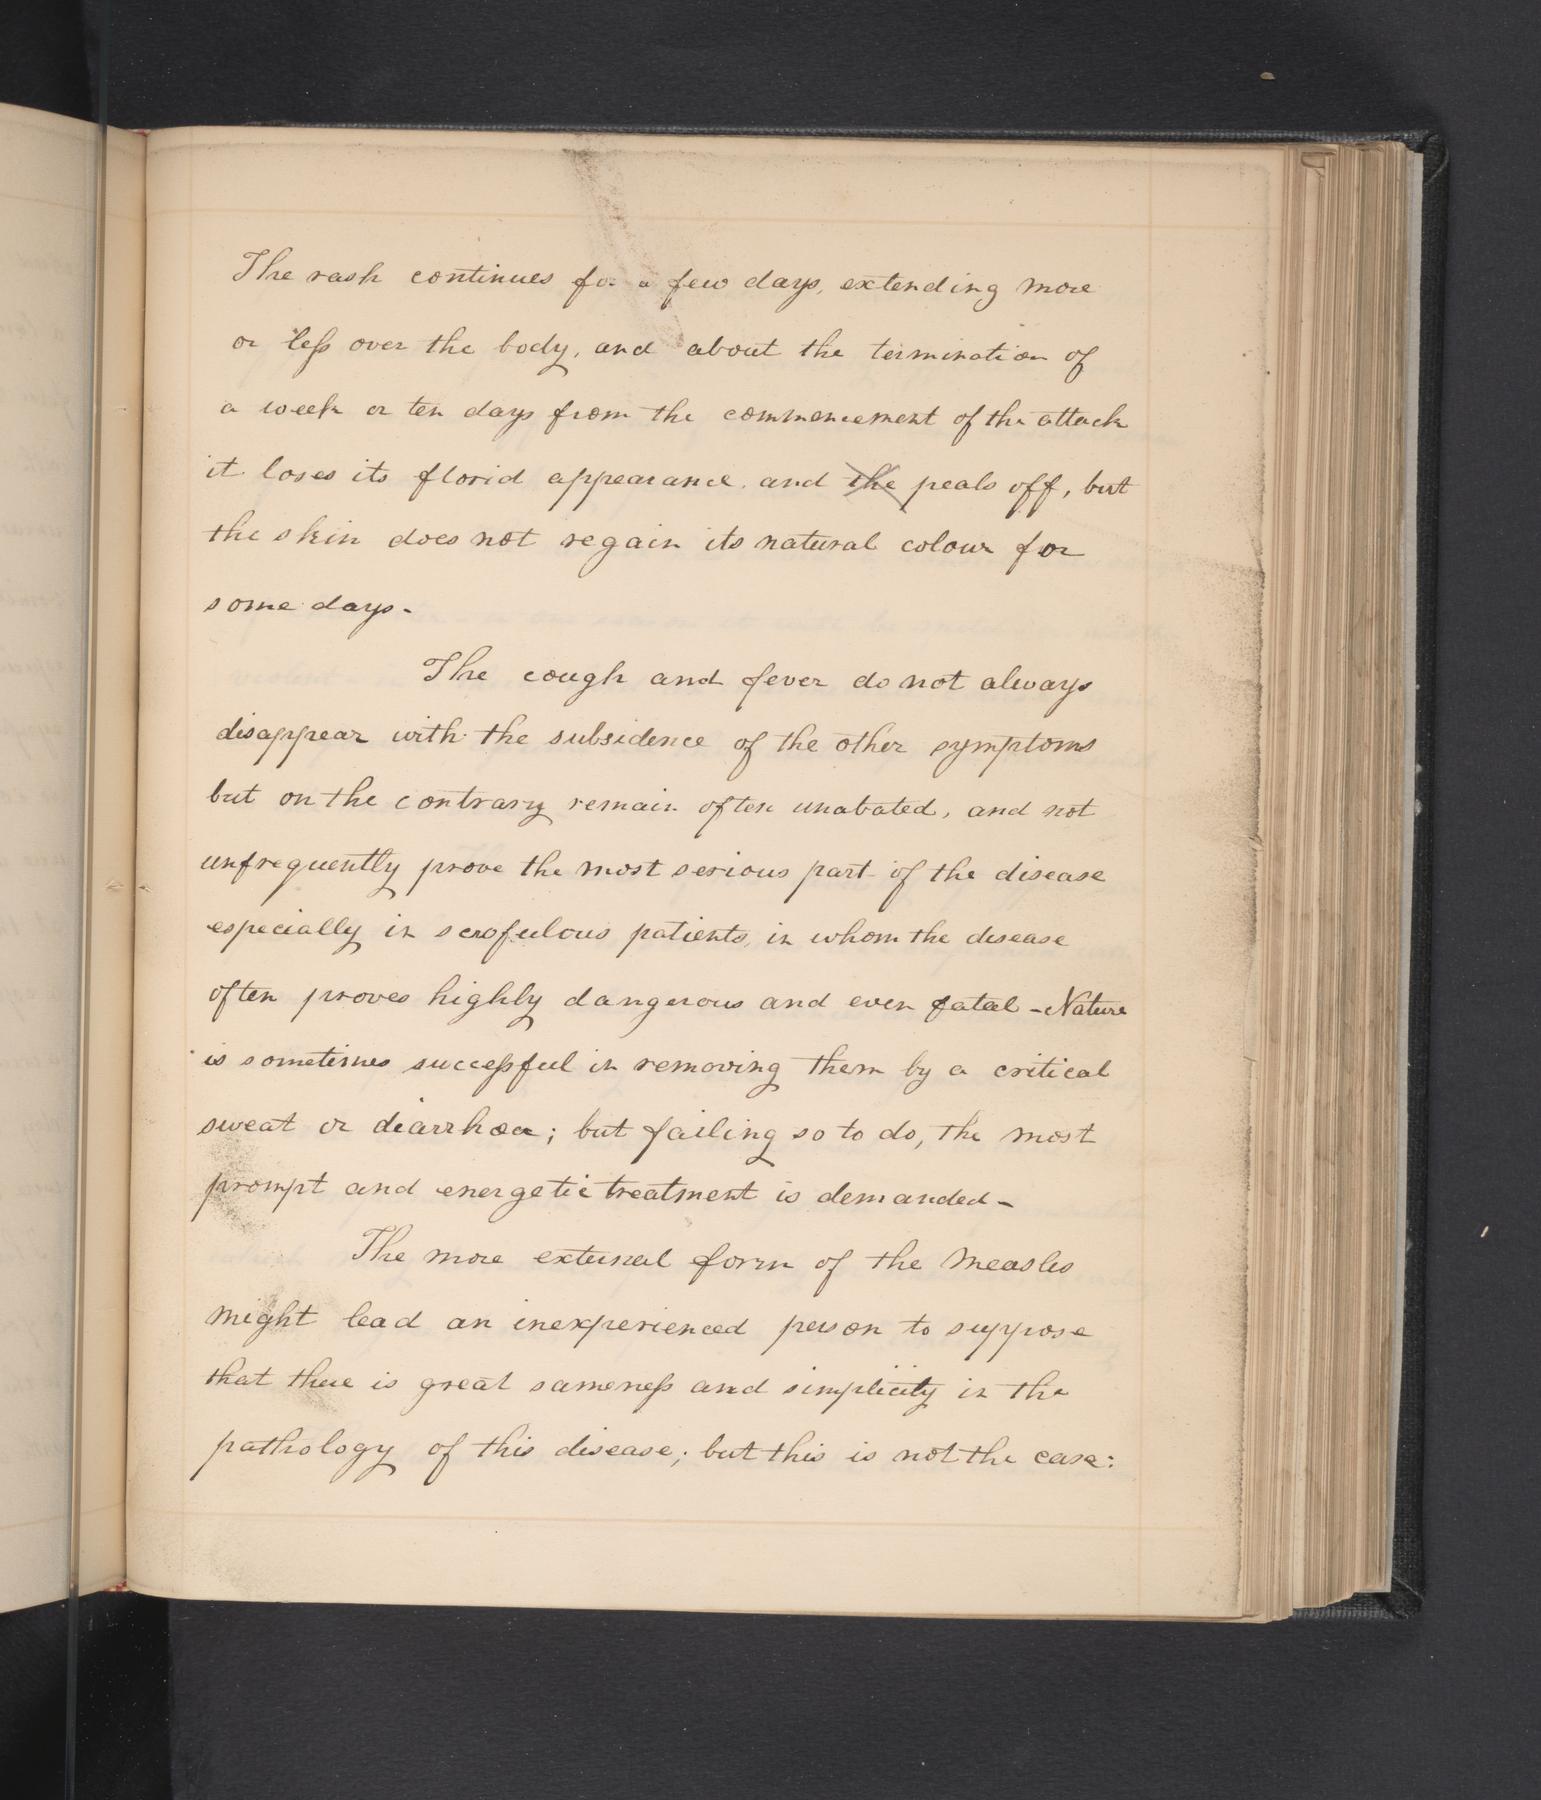 The rash continues for a few days, extending more
or less over the body, and about the termination of
a week or ten days from the commencement of the attack
it loses its florid appearance. and the peals off, but
the skin does not regain its natural colour for
some days-
The cough and fever do not always
disappear with the subsidence of the other symptoms
but on the contrary remain often unabated, and not
unfrequently prove the most serious part of the disease
especially in scrofulous patients, in whom the disease
often proves highly dangerous and even fatal - Nature
is sometimes successful in removing them by a critical
sweat or diarrhœa; but failing so to do, the most
prompt and energetic treatment is demanded-
The more external form of the Measles
might lead an inexperienced person to suppose
that there is great sameness and simplicity in the
pathology of this disease; but this is not the case: